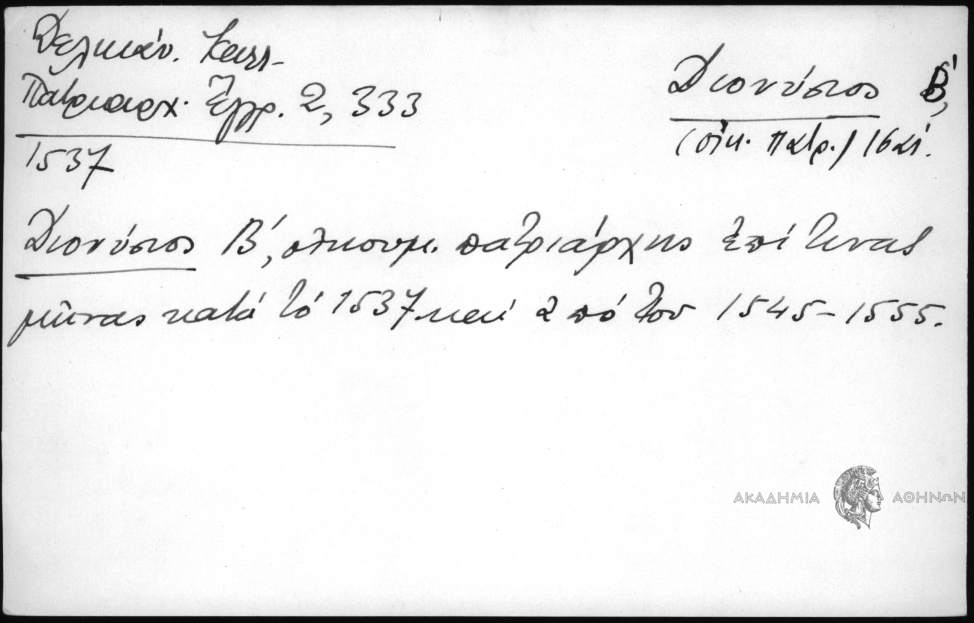 Δελικάν. Καλλ.
Πατριαρχ. Ἔγγρ. 2, 333
1537
Διονύσιος Β',
(οἰκ. πατρ.) 16 αἰ.
Διονύσιος Β', οἰκουμ. πατριάρχης ἐπί τινας
μῆνας κατά τό 1537 καί ἀπό τοῦ 1545-1555.
ΑΚΑΔΗΜΙΑ ΑΘΗΝΩΝ